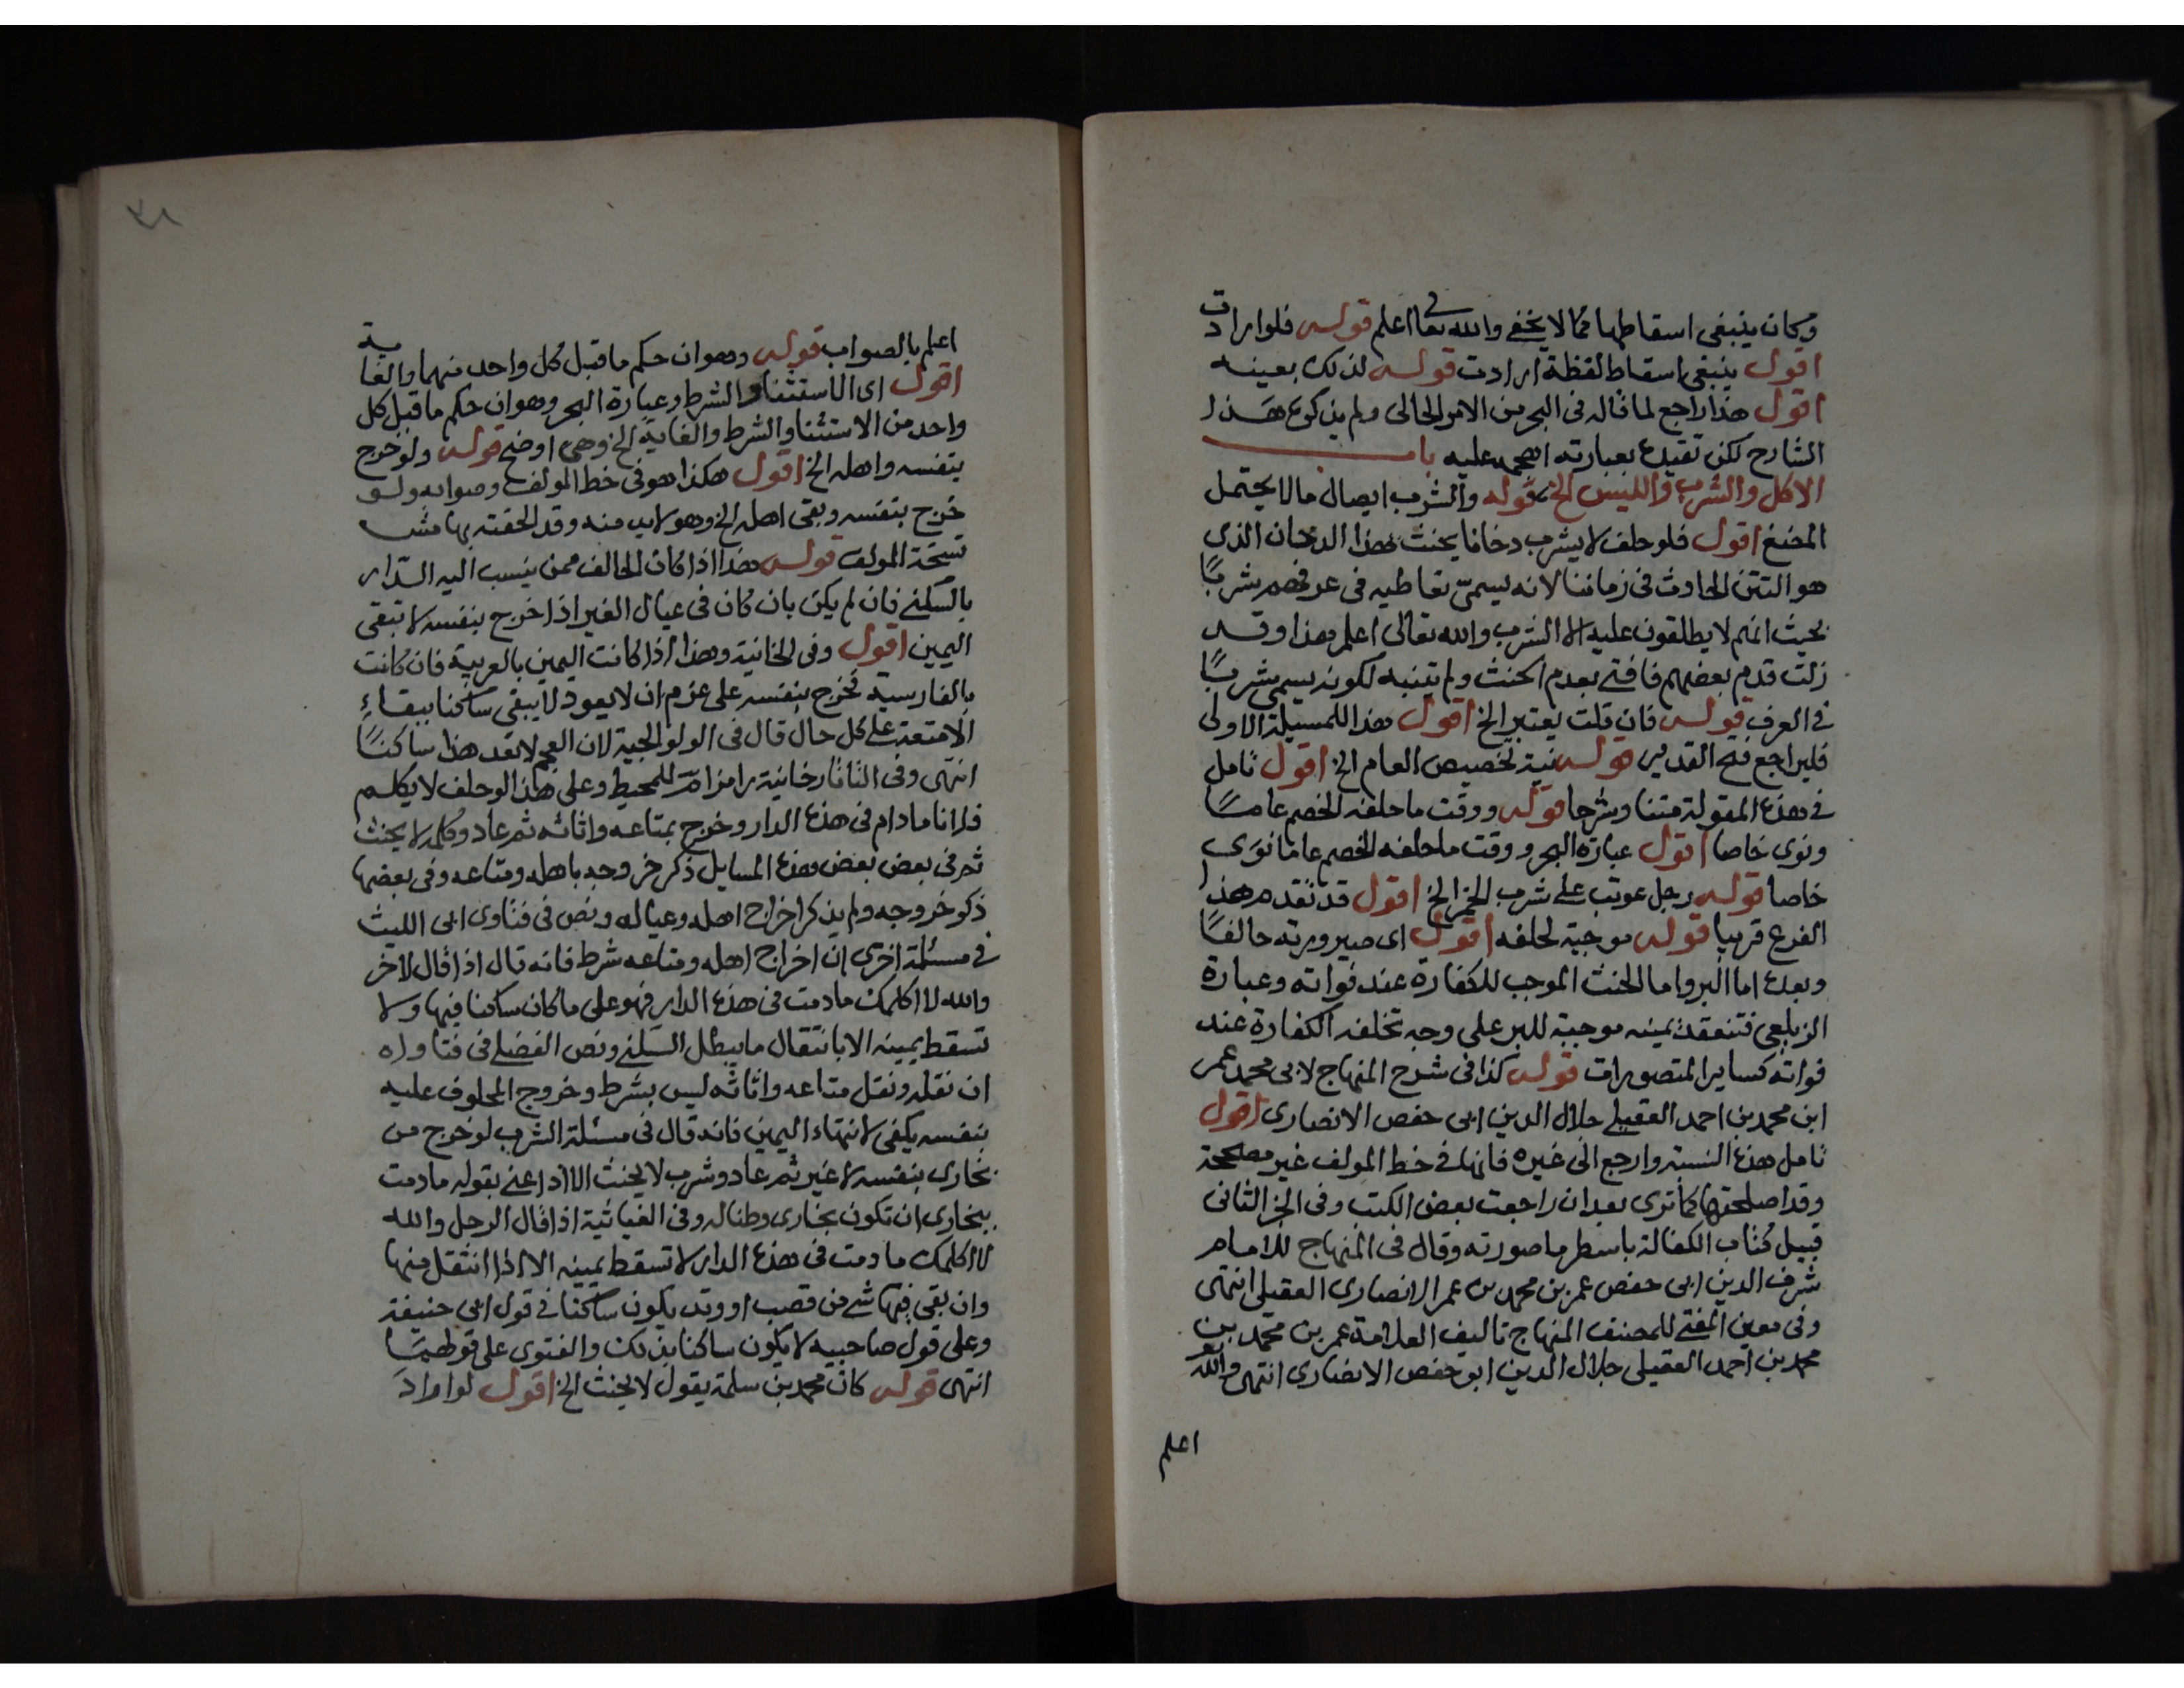 وكان ينبغي اسقاطها كما لا يخفى والله تعالى اعلم قوله فلو ارادت
اقول ينبغي اسقاط لفظة ارادت قوله لذلك بعينه
اقول هذا راجع لما قاله في البحر من الامر الحالى ولم يذكره هذا
الشارح لكن تقيده بعبارته عليه باب
الاكل والشرب واللبس الخ قوله والشرب ايصال مالا يحتمل
المضغ اقول فلو حلف لا يشرب دخانا يحنث بهذا الدخان الذى
هو التتن الحادث فى زماننا لانه يسمى تعاطيه فى عرفهم شربًا
بحيث انهم لا يطلقون عليه الا الشرب والله تعالى اعلم هذا وقد
زلت قدم بعضهم فافتى بعدم الحنث ولم يتنبه لكونه يسمى شربًا
في العرف قوله فان قلت يعتبر الخ اقول هذا للمسيلة الاولى
فليراجع فتح القدير قوله نية تخصيص العام الخ اقول تامل
في هذه المقولة متنا وشرحا قوله ووقت ما حلفه الخصم عامًا
ونوى خاصا اقول عبارة البحر ووقت ما حلفه الخصم عاما نوى
خاصا قوله رجل عوتب على شرب الخمر الخ اقول قد تقدم هذا
الفرع قريبا قوله موجبة لحلفه اقول اى صيرورته حالفًا
وبعده اما البر واما الحنث الموجب للكفارة عند فواته وعبارة
الزيلعى فتنعقد يمينه موجبة للبر على وجه تخلفه الكفارة عند
فواته كساير المتصورات قوله كذا فى شرح المنهاج لابى محمد عمر
ابن محمد بن احمد العقيلي جلال الدين ابى حفص الانصارى اقول
تامل هذه النسبة وارجع الى غيره فانها في خط المولف غير مصححة
وقد اصلحتها كما ترى بعد ان راجعت بعض الكتب وفى الجز الثانى
قبيل كتاب الكفالة باسطر ما صورته وقال فى المنهاج للامام
شرف الدين ابى حفص عمر بن محمد بن عمر الانصارى العقيلى انتهى
وفى معين المفتى للمصنف المنهاج تاليف العلامة عمر بن محمد بن
محمد بن احمد العقيلى جلال الدين ابو حفص الانصارى انتهى والله
اعلم
٣٨
اعلم بالصواب قوله وهو ان حكم ما قبل كل واحد منهما والغاية
اقول اى الاستثناء والشرط وعبارة البحر وهو ان حكم ما قبل كل
واحد من الاستثنا والشرط والغاية الخ وهى اوضح قوله ولو خرج
بنفسه واهله الخ اقول هكذا هو فى خط المولف وصوابه ولو
خرج بنفسه وبقى اهله الخ وهو لا بد منه وقد الحقته بهامش
نسخة المولف قوله هذا اذا كان الحالف ممن ينسب اليه الدار
بالسكنى فان لم يكن بان كان فى عيال الغير اذا خرج بنفسه لا تبقى
اليمين اقول وفى الخانية وهذا اذا كانت اليمين بالعربية فان كانت
بالفارسية فخرج بنفسه على عزم ان لا يعود لا يبقى ساكنا ببقاءِ
الامتعة على كل حال قال فى الولوالجية لان العجم لا تعد هذا ساكنًا
انتهى وفى التاتارخانية رامزا للمحيط وعلى هذا لو حلف لا يكلم
فلانا ما دام فى هذه الدار وخرج بمتاعه واثاثه ثم عاد وكلمه لا يحنث
ثم فى بعض بعض هذه المسايل ذكر خروجه باهله ومتاعه وفى بعضها
ذكر خروجه ولم يذكر اخراج اهله وعياله ونص فى فتاوى ابى الليث
في مسئلة اخرى ان اخراج اهله ومتاعه شرط فانه قال اذا قال لاخر
والله لا اكلمك ما دمت فى هذه الدار فهو على ما كان ساكنا فيها ولا
تسقط يمينه الا بانتقال ما يبطل السكنى ونص الفضلى فى فتاواه
ان نقله ونقل متاعه واثاثه ليس بشرط وخروج المحلوف عليه
بنفسه يكفى لانتهاء اليمين فانه قال فى مسئلة الشرب لو خرج من
بخارى بنفسه لا غير ثم عاد وشرب لا يحنث الا اذا عنى بقوله ما دمت
ببخارى ان تكون بخارى وطنا له وفى الغياثية اذا قال الرجل والله
لا اكلمك ما دمت فى هذه الدار لا تسقط يمينه الا اذا انتقل منها
وان بقى فيها شى من قصب او وتد يكون ساكنا في قول ابى حنيفة
وعلى قول صاحبيه لا يكون ساكنا بذلك والفتوى على قولهما
انتهى قوله كان محمد بن سلمة يقول لا يحنث الخ اقول لو اراد